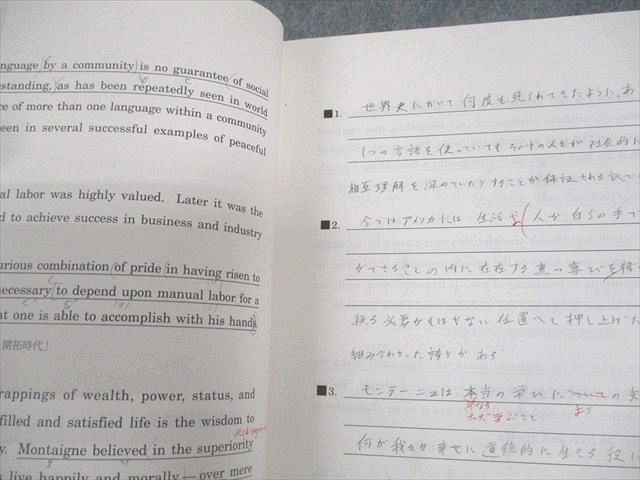 nguage (by a community) is no guarantee of social
standing, as has been repeatedly seen in world
ce of more than one language within a community
een in several successful examples of peaceful
al labor was highly valued. Later it was the
d to achieve success in business and industry
urious combination of pride in having risen to
necessary to depend upon manual labor for a
at one is able to accomplish with his hands.
開拓時代」
rappings of wealth, power, status, and
filled and satisfied life is the wisdom to
y. Montaigne believed in the superiority
s live happily and morally — over mere
■1. 世界史において何度も見られてきたように、あ
1つの言語を使っていてもその中の人々が社会的に
相互理解を深めていたりすることが保証される訳で
■2. 今ではアメリカには生活を(人が自らの手で
ができることの内に存在する真の喜びを
る必要がもはやない位置へと押し上げた
組み合わさった誇りがある
■3. モンテーニュは本当の学びに
ただ学ぶこと
より
何が我々が幸せに道徳的に生きる役に